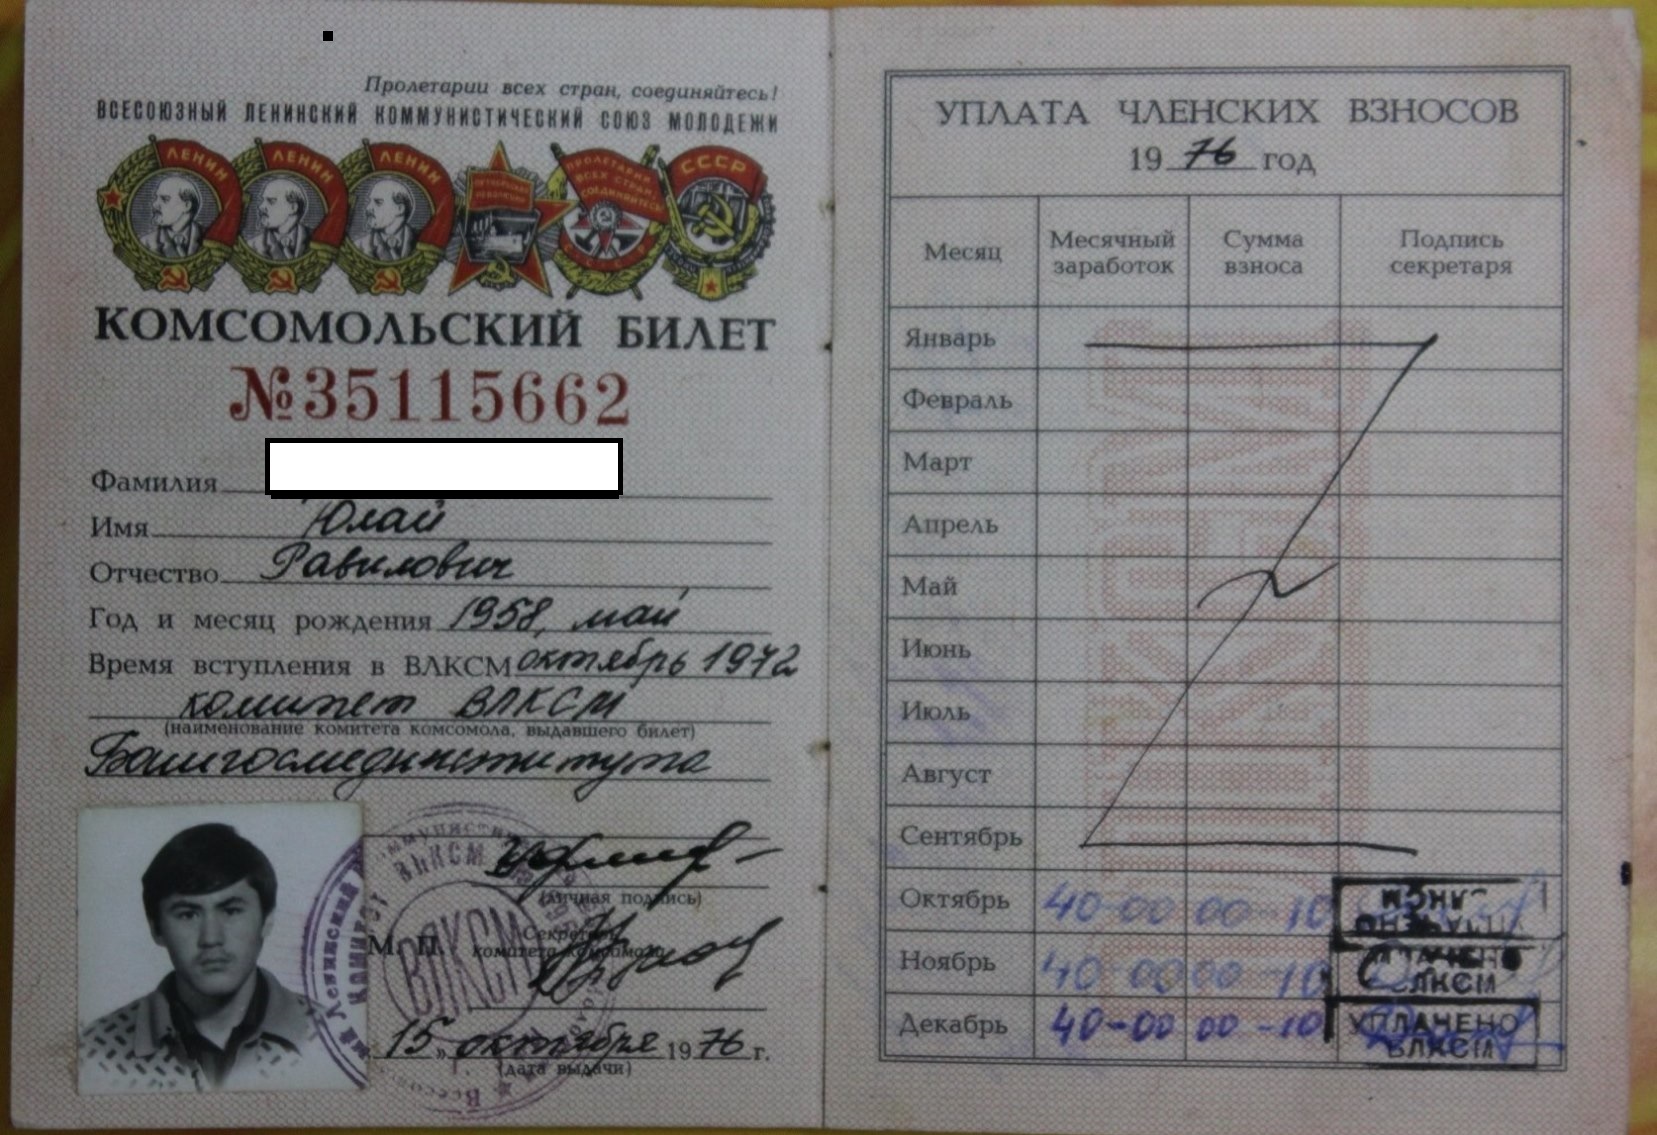 Пролетарии всех стран, соединяйтесь!
ВСЕСОЮЗНЫЙ ЛЕНИНСКИЙ КОММУНИСТИЧЕСКИЙ СОЮЗ МОЛОДЕЖИ
ЛЕНИН ЛЕНИН ЛЕНИН ОКТЯБРЬСКАЯ РЕВОЛЮЦИЯ ПРОЛЕТАРИИ ВСЕХ СТРАН, СОЕДИНЯЙТЕСЬ СССР
КОМСОМОЛЬСКИЙ БИЛЕТ
№35115662
Фамилия
Имя Юлай
Отчество Равилович
Год и месяц рождения 1958, май
Время вступления в ВЛКСМ октябрь 1972
комитет ВЛКСМ
(наименование комитета комсомола, выдавшего билет)
Башгосмединститута
(личная подпись)
М. П. Секретарь
комитета комсомола
ВЛКСМ
«15» октября 1976 г.
(дата выдачи)
УПЛАТА ЧЛЕНСКИХ ВЗНОСОВ
1976 год
Месяц Месячный заработок Сумма взноса Подпись секретаря
Январь
Февраль
Март
Апрель
Май
Июнь
Июль
Август
Сентябрь
Октябрь 40-00 00-10
Ноябрь 40-00 00-10 ВЛКСМ
Декабрь 40-00 00-10 УПЛАЧЕНО ВЛКСМ